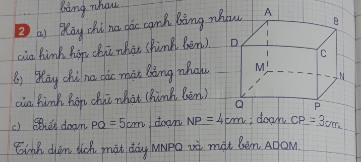 bằng nhau
2 a) Hãy chỉ ra các cạnh bằng nhau
của hình hộp chữ nhật (hình bên).
b) Hãy chỉ ra các mặt bằng nhau
của hình hộp chữ nhật (hình bên)
c) Biết đoạn PQ = 5cm; đoạn NP = 4cm; đoạn CP = 3cm
Tính diện tích mặt đáy MNPQ và mặt bên ADQM.
A
B
D
C
M
N
Q
P